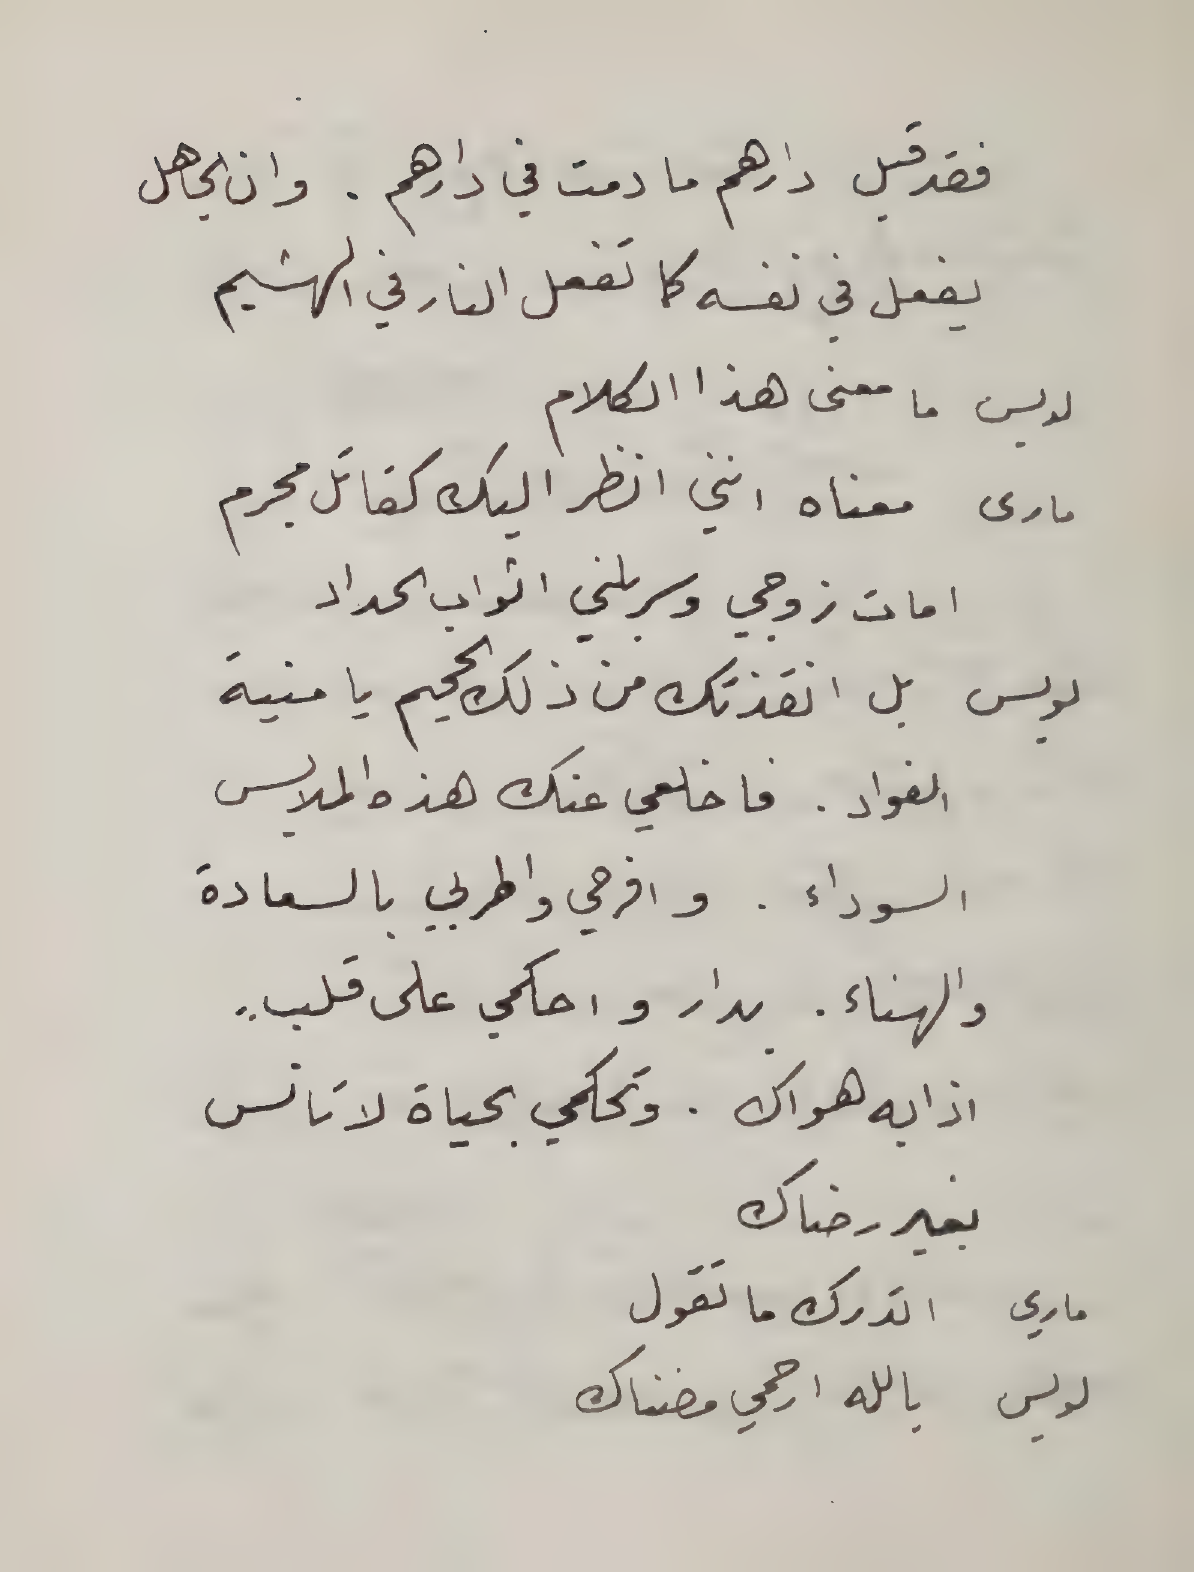 فقد قيل دارهم ما دمت في دارهم . وان الجاهل
يفعل في نفسه كما تفعل النار في الهشيم
لويس ما معنى هذا الكلام
مارى معناه انني انظر اليك كقاتل مجرم
امات زوجي وسربلني اثواب الحداد
لويس بل انقذتك من ذلك الجحيم يا منية
الفواد . فاخلعي عنك هذه الملابس
السوداء . و افرحي واطربي بالسعادة
والهناء . بدار و احكمي على قلب ..
اذابه هواك . وتحكمي بحياة لا تانس
بغير رضاك
ماري اتدرك ما تقول
لويس بالله ارحمي مضناك